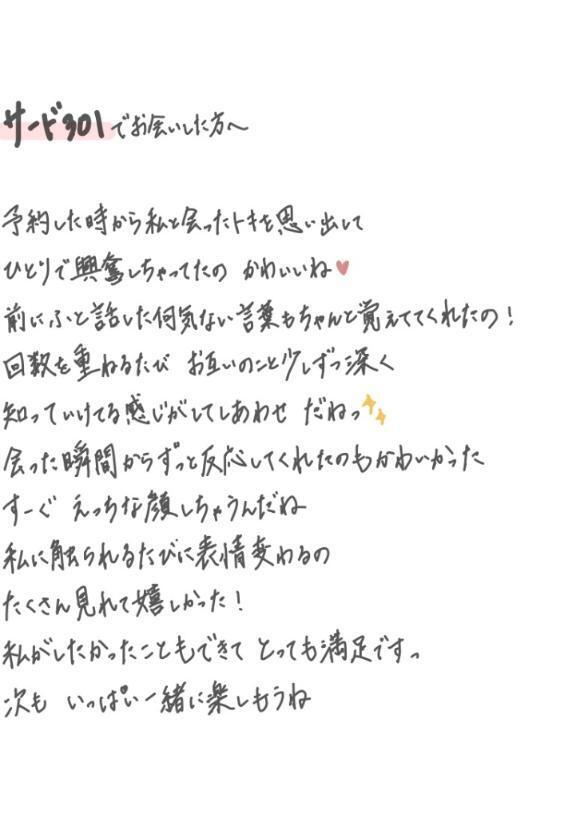 サード301でお会いした方へ
予約した時から私と会ったトキを思い出して
ひとりで興奮しちゃってたの かわいいね♥
前にふと話した何気ない言葉もちゃんと覚えててくれたの！
回数を重ねるたび お互いのこと少しずつ深く
知っていけてる感じがしてしあわせ だねっ✨
会った瞬間からずっと反応してくれたのもかわいかった
すーぐ えっちな顔しちゃうんだね
私に触られるたびに表情変わるの
たくさん見れて嬉しかった！
私がしたかったこともできて とっても満足ですっ
次も いっぱい一緒に楽しもうね